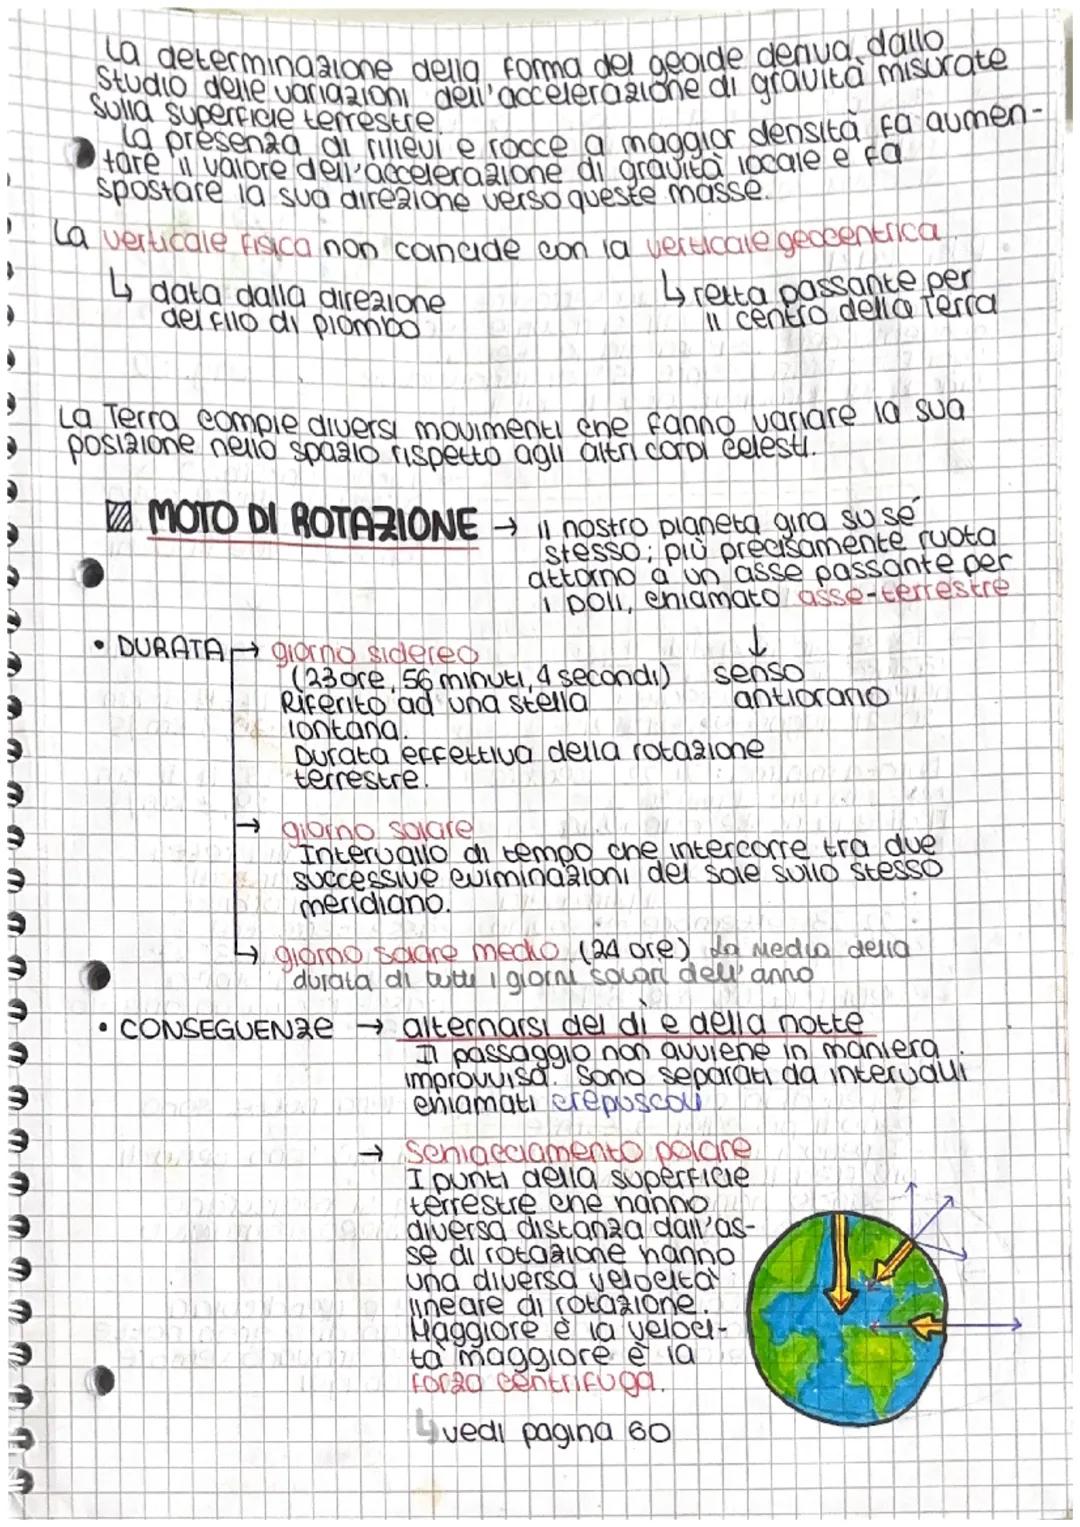 La determinazione della forma del geoide deriva dallo
studio delle variazioni dell'accelerazione di gravità misurate
sulla superficie terrestre.
La presenza di rilievi e rocce a maggior densità fa aumen-
tare il valore dell'accelerazione di gravità locale e fa
spostare la sua direzione verso queste masse.
La verticale fisica non coincide con la verticale geocentrica.
↳ data dalla direzione
del filo di piombo
↳ retta passante per
il centro della Terra
La Terra compie diversi movimenti che fanno variare la sua
posizione nello spazio rispetto agli altri corpi celesti.
MOTO DI ROTAZIONE → il nostro pianeta gira su sé
stesso; più precisamente ruota
attorno a un asse passante per
i poli, chiamato asse-terrestre
↓
senso
antiorario
• DURATA → giorno sidereo
(23 ore, 56 minuti, 4 secondi)
Riferito ad una stella
lontana.
Durata effettiva della rotazione
terrestre.
→ giorno solare
Intervallo di tempo che intercorre tra due
successive culminazioni del sole sullo stesso
meridiano.
↳ giorno solare medio (24 ore) La media della
durata di tutti i giorni solari dell'anno
• CONSEGUENZE → alternarsi del dì e della notte
Il passaggio non avviene in maniera
improvvisa. Sono separati da intervalli
chiamati crepuscoli
→ Schiacciamento polare
I punti della superficie
terrestre che hanno
diversa distanza dall'as-
se di rotazione hanno
una diversa velocità
lineare di rotazione.
Maggiore è la veloci-
tà maggiore è la
forza centrifuga.
↳ vedi pagina 60